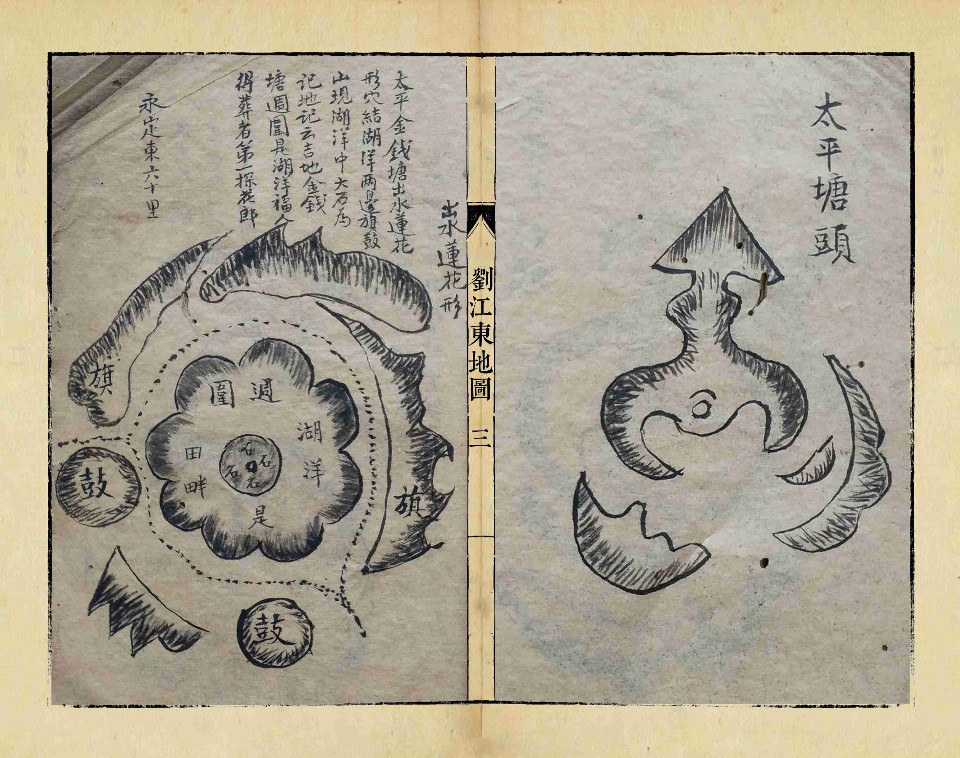 太平塘頭
劉江東地圖
三
出水蓮花形
太平金錢塘出水蓮花
形穴結湖洋两邊旗鼓
山現湖洋中大石為
記地記云吉地金錢
塘週圍是湖洋福人
得葬者第一探花郎
永定東六十里
旗
旗
鼓
鼓
週圍
湖洋
是
田畔
石
石
石
石